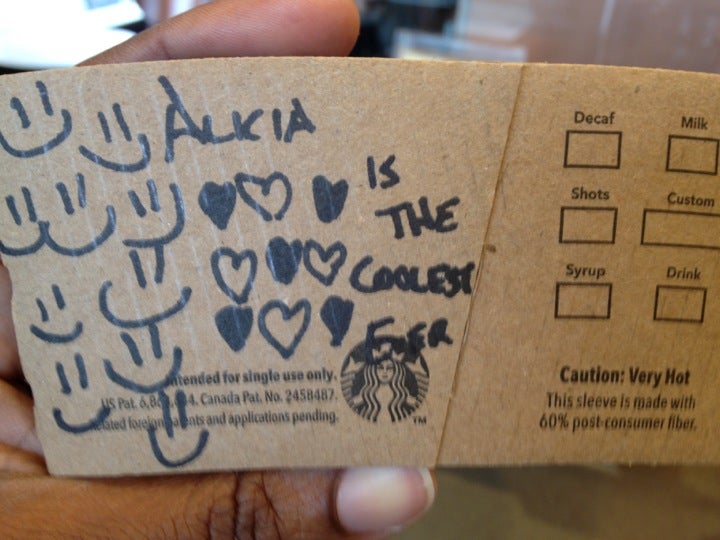 ALKIA
IS
THE
COOLEST
EVER
Intended for single use only.
Canada Pat. No. 2458487.
and applications pending.
TM
Decaf
Milk
Shots
Custom
Syrup
Drink
Caution: Very Hot
This sleeve is made with
60% post-consumer fiber.